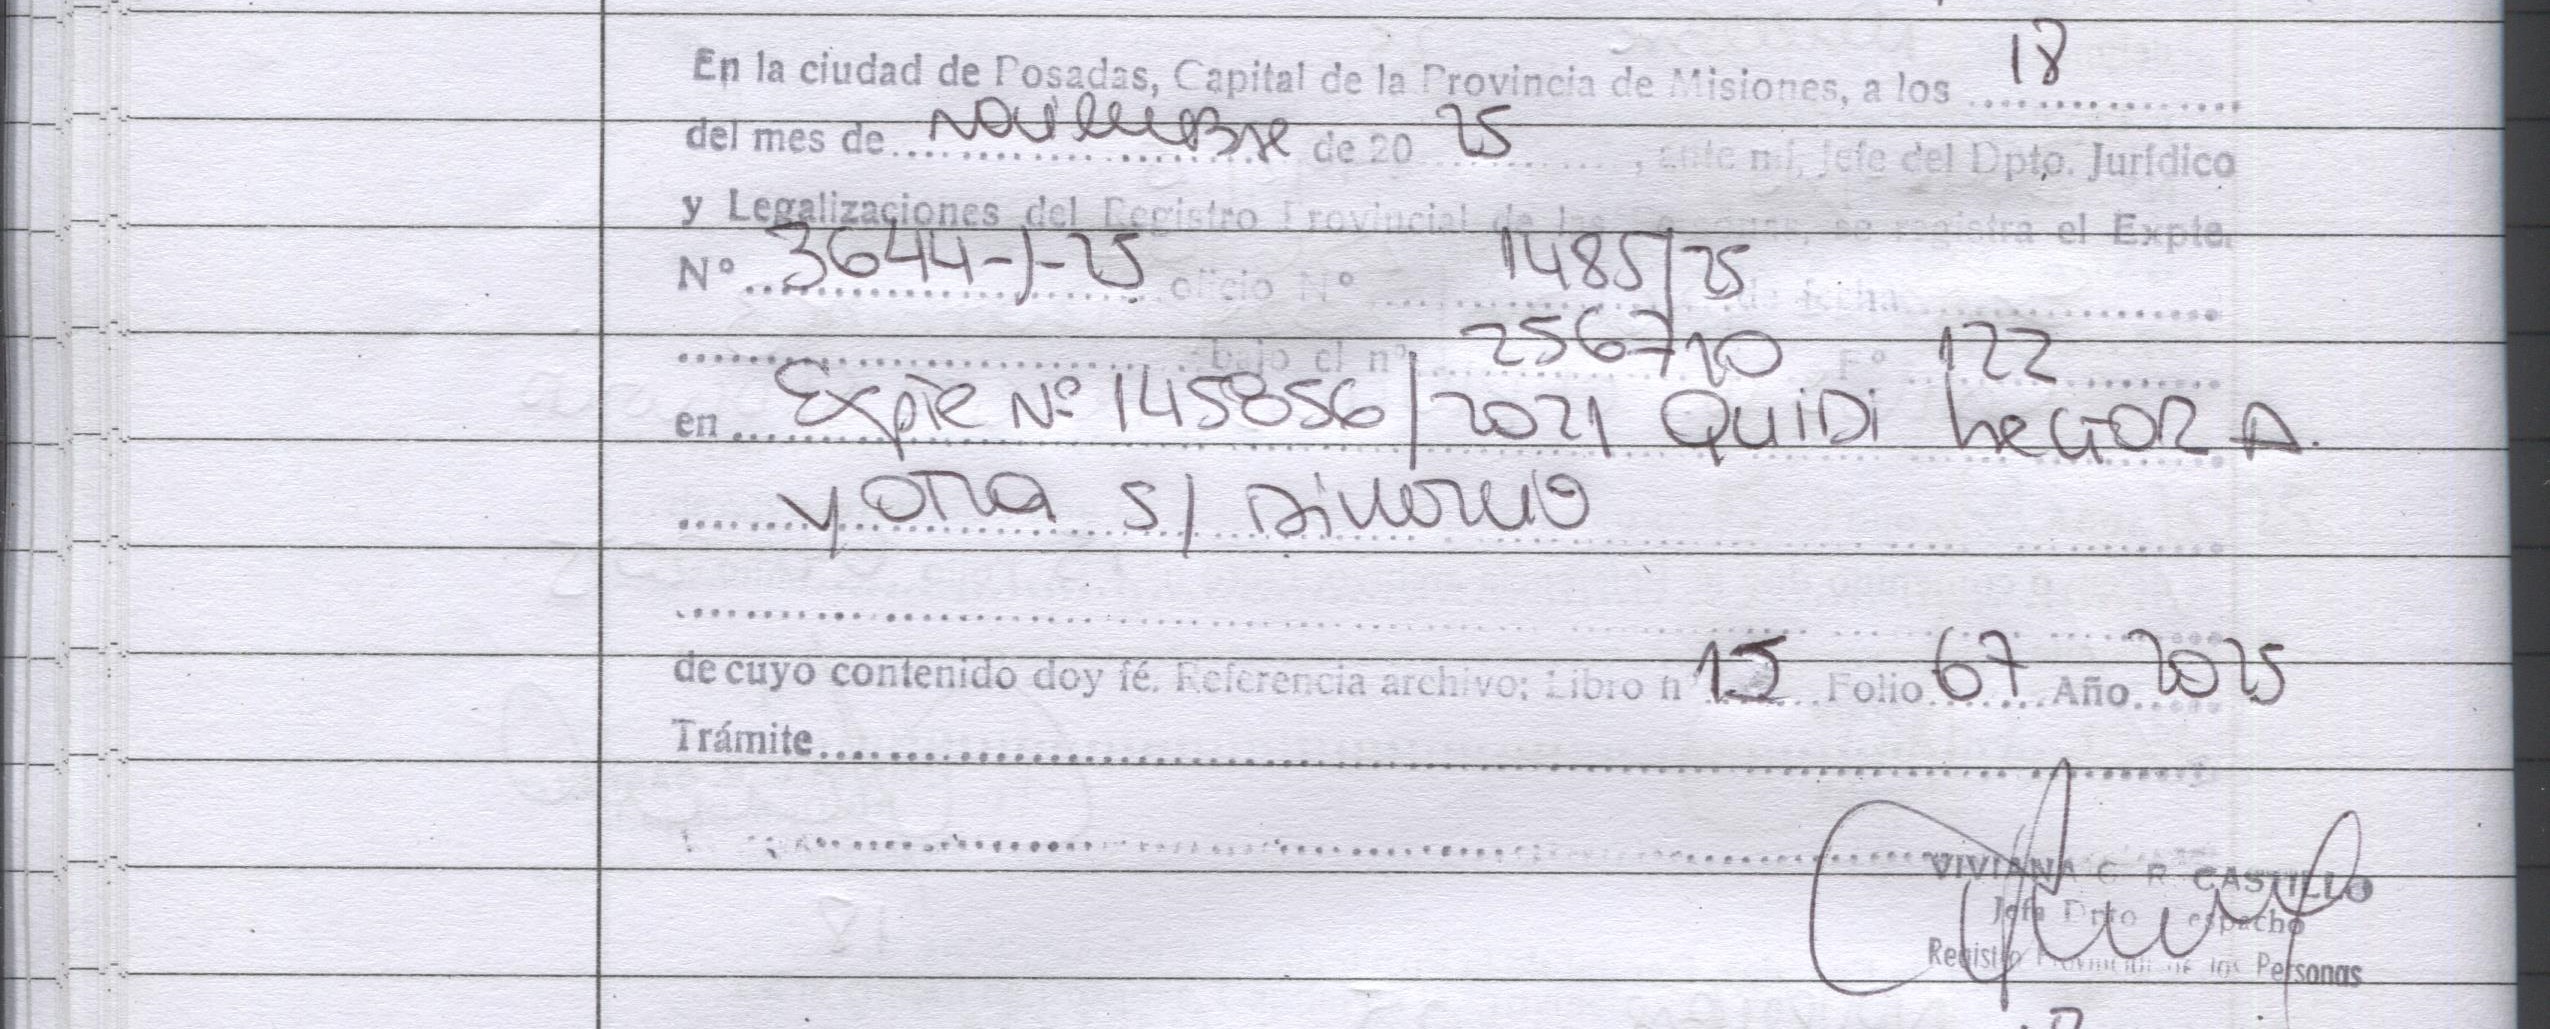 En la ciudad de Posadas, Capital de la Provincia de Misiones, a los 18
del mes de Noviembre de 20 25, ante mí, Jefe del Dpto. Jurídico
y Legalizaciones del Registro Provincial de las Personas, se registra el Expte.
Nº 3644-J-25 oficio Nº 1485/25 de fecha
bajo el nº 256710 Fº 122
en Expte Nº 145856/2021 QUIDI hector A.
y otra s/ Divorcio
de cuyo contenido doy fé. Referencia archivo; Libro n 15 Folio 67 Año 2025
Trámite
VIVIANA C. R. CASTILLO
Jefa Dpto Despacho
Registro Provincial de las Personas